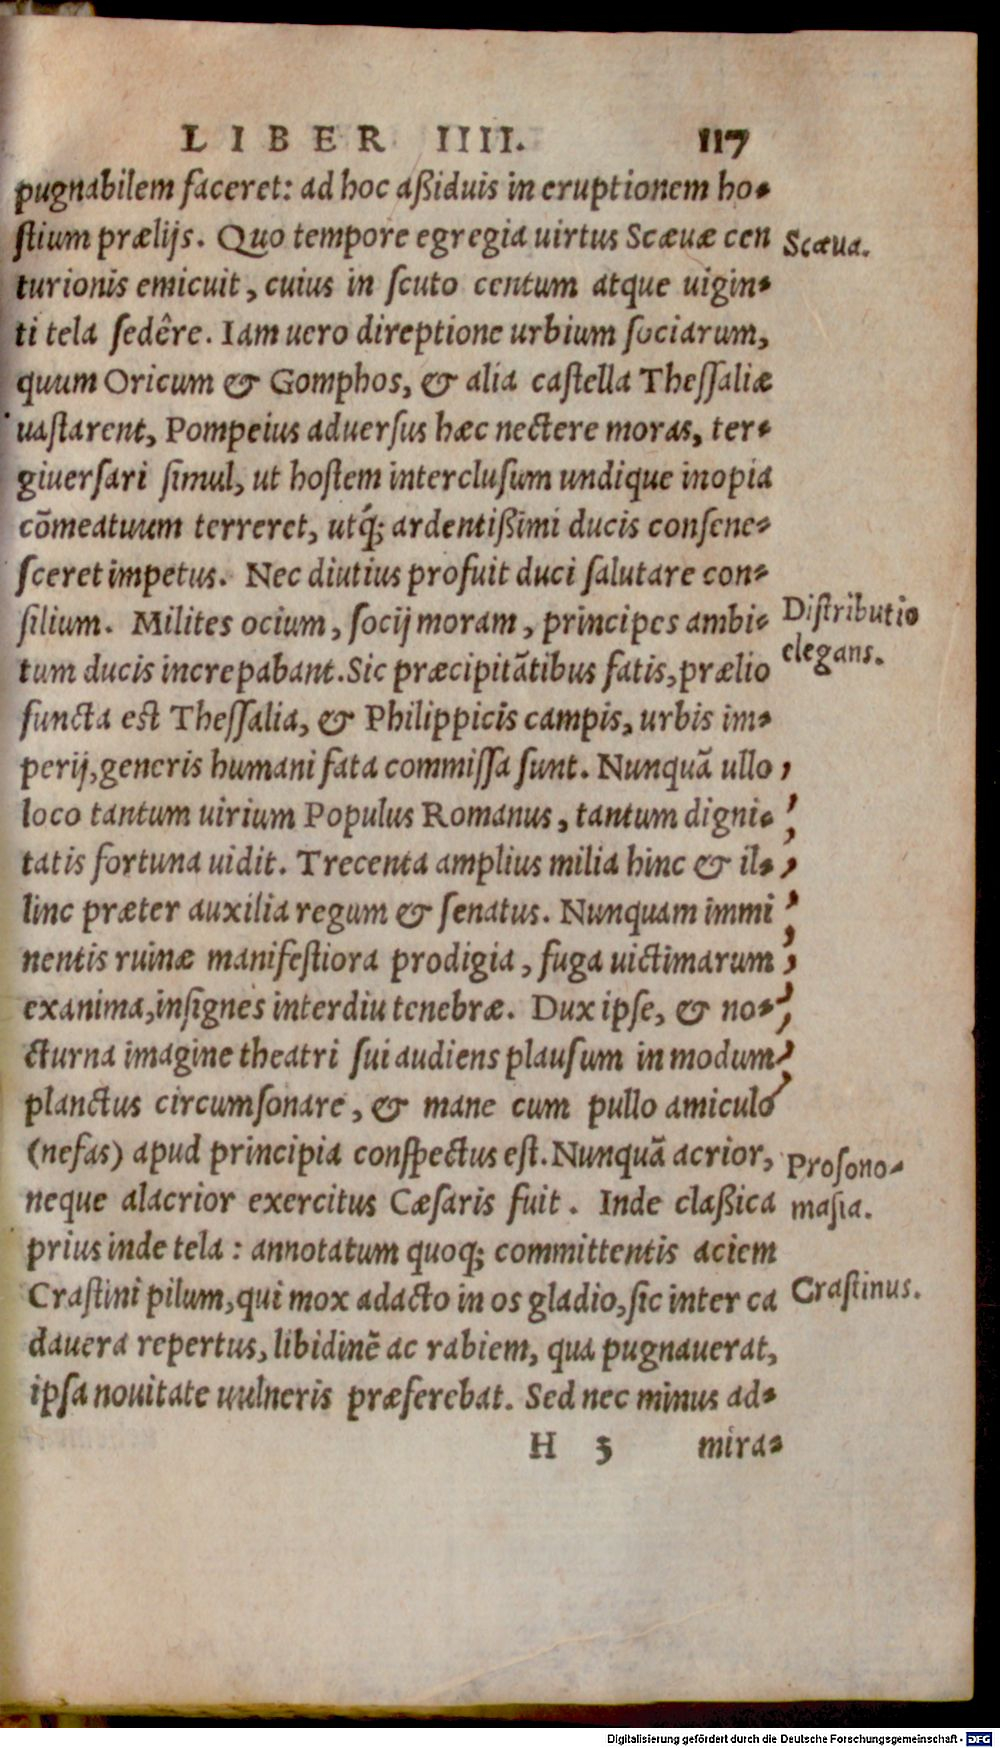 LIBER IIII. 117
pugnabilem faceret: ad hoc aßiduis in eruptionem ho-
ſtium prælijs. Quo tempore egregia uirtus Scæuæ cen
Scæua.
turionis emicuit, cuius in ſcuto centum atque uigin-
ti tela ſedêre. Iam uero direptione urbium ſociarum,
quum Oricum & Gomphos, & alia caſtella Theſſaliæ
uaſtarent, Pompeius aduerſus hæc nectere moras, ter-
giuerſari ſimul, ut hoſtem intercluſum undique inopia
cõmeatuum terreret, utq́; ardentißimi ducis conſene-
ſceret impetus. Nec diutius profuit duci ſalutare con-
ſilium. Milites ocium, ſocij moram, principes ambi-
Diſtributio
elegans.
tum ducis increpabant. Sic præcipitãtibus fatis, prælio
ſuncta eſt Theſſalia, & Philippicis campis, urbis im-
perij, generis humani fata commiſſa ſunt. Nunquã ullo
loco tantum uirium Populus Romanus, tantum digni-
tatis fortuna uidit. Trecenta amplius milia hinc & il-
linc præter auxilia regum & ſenatus. Nunquam immi
nentis ruinæ manifeſtiora prodigia, fuga uictimarum
exanima, inſignes interdiu tenebræ. Dux ipſe, & no-
cturna imagine theatri ſui audiens plauſum in modum
planctus circumſonare, & mane cum pullo amiculo
(nefas) apud principia conſpectus eſt. Nunquã acrior,
Proſono-
maſia.
neque alacrior exercitus Cæſaris fuit. Inde claßica
prius inde tela: annotatum quoq; committentis aciem
Craſtini pilum, qui mox adacto in os gladio, ſic inter ca
Craſtinus.
dauera repertus, libidinẽ ac rabiem, qua pugnauerat,
ipſa nouitate uulneris præferebat. Sed nec minus ad-
H 3 mira-
Digitalisierung gefördert durch die Deutsche Forschungsgemeinschaft - DFG